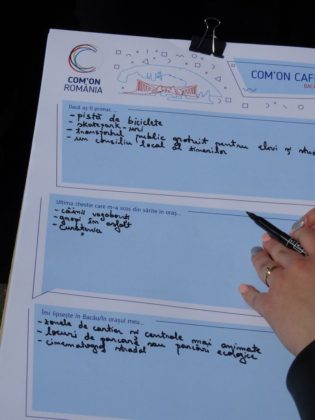 COM'ON
ROMÂNIA
COM'ON CAF
Dacă aș fi primar...
- pistă de biciclete
- skatepark-uri
- transportul public gratuit pentru elevi și stud
- un consiliu local al tinerilor
Ultima chestie care m-a scos din sărite în oraș...
- câinii vagabonzi
- gropi în asfalt
- curățenia
Îmi lipsește în Bacău/în orașul meu...
- zonele de cartier și centrale mai animate
- locuri de parcare sau parcări ecologice
- cinematograf stradal